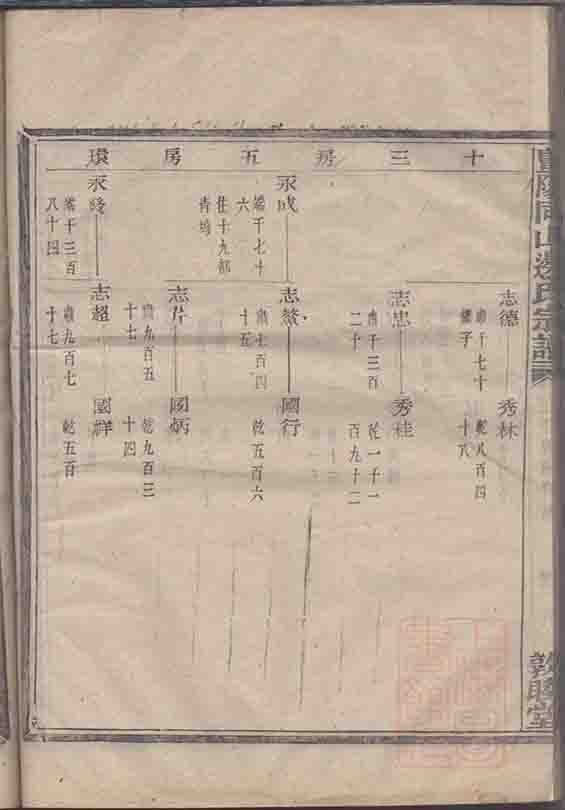 暨陽同山邊氏宗譜
敦睦堂
十三房五房環
志德 秀林
千七十
繼子
乾八百四
十八
志忠 秀桂
千三百
二十
乾一千一
百九十二
永成
端千七十
六
住十九都
青塢
志鰲 國行
七百四
十五
乾五百六
志芹 國炳
九百五
十七
乾九百三
十四
永綫
端千三百
八十四
志超 國祥
九百七
十七
乾五百